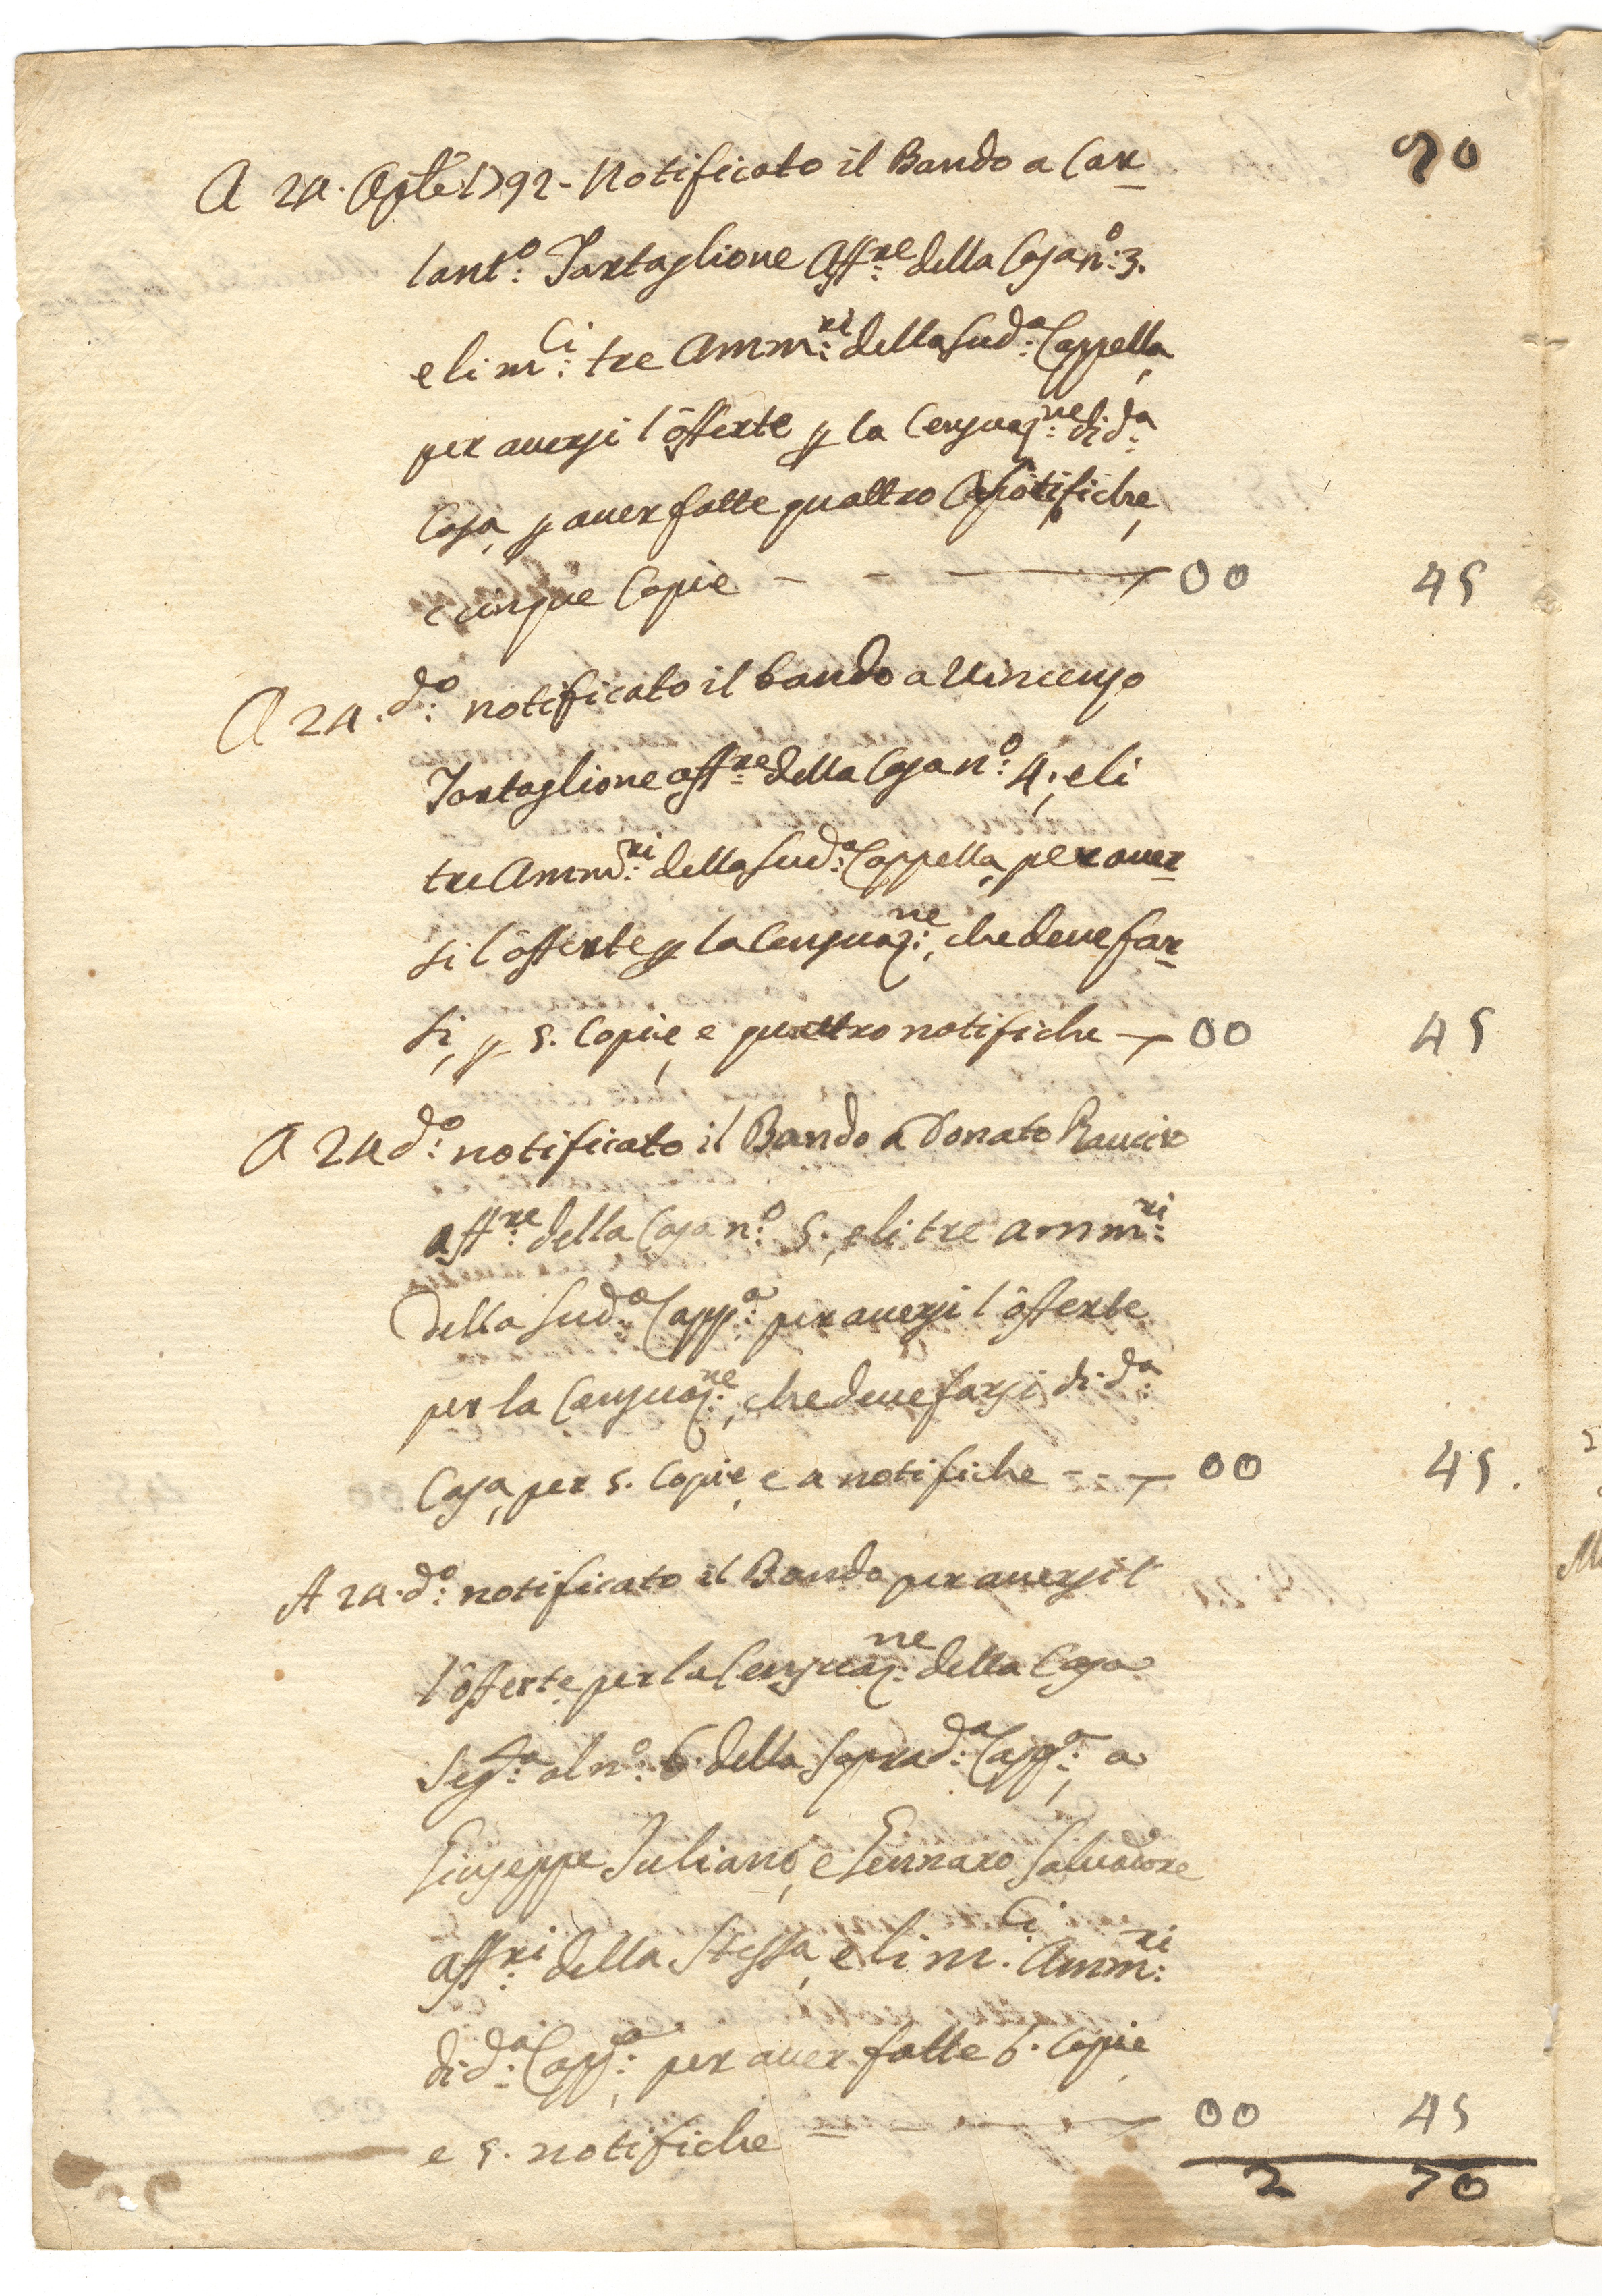 90
A 24. Aple 1792 - Notificato il Bando a Car
lant.º Tartaglione Aff.re della Casa n.º 3.
e li m.ci tre Amm.ri della Sud.a Cappella,
per aversi l'offerte p la Censuaz.ne di d.a
Casa, p aver fatte quattro notifiche,
e cinque Copie - - — 00 45
A 24. d.º notificato il bando a Vincenzo
Tartaglione aff.re della Casa n.º 4, e li
tre Amm.ri della Sud.a Cappella, per aver
si l'offerte p la Censuaz.ne, che deve far
si, p 5. Copie, e quattro notifiche — 00 45
A 24 d.º notificato il Bando a Donato Raucio
aff.re della Casa n.º 5. e li tre amm.ri
della Sud.a Capp.a per aversi l'offerte
per la Censuaz.ne, che deve farsi di d.a
Casa, per 5. Copie, e 4 notifiche - - — 00 45.
A 24. d.º notificato il Bando per aversi l'
l'offerte per la Censuaz.ne della Casa
Seg.ta al n.º 6. della Soprad.a Capp.a, a
Giuseppe Iuliano, e Gennaro Salvadore
aff.ri della Stessa, e li m.ci Amm.ri
di d.a Capp.a, per aver fatte 6. Copie,
e 5. notifiche — — — 00 45
2 70